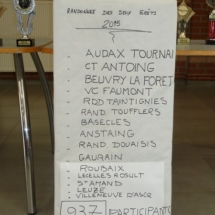 RANDONNEE DES DEUX
2015
AUDAX TOURNAI
CT ANTOING
BEUVRY LA FORET
VC FAUMONT
RDB TAINTIGNIES
RAND. TOUFFLERS
BASECLES
ANSTAING
RAND. DOUAISIS
GAURAIN
ROUBAIX
LECELLES ROSULT
ST AMAND
LEUZE
VILLENEUVE D'ASCQ
937 PARTICIPANTS